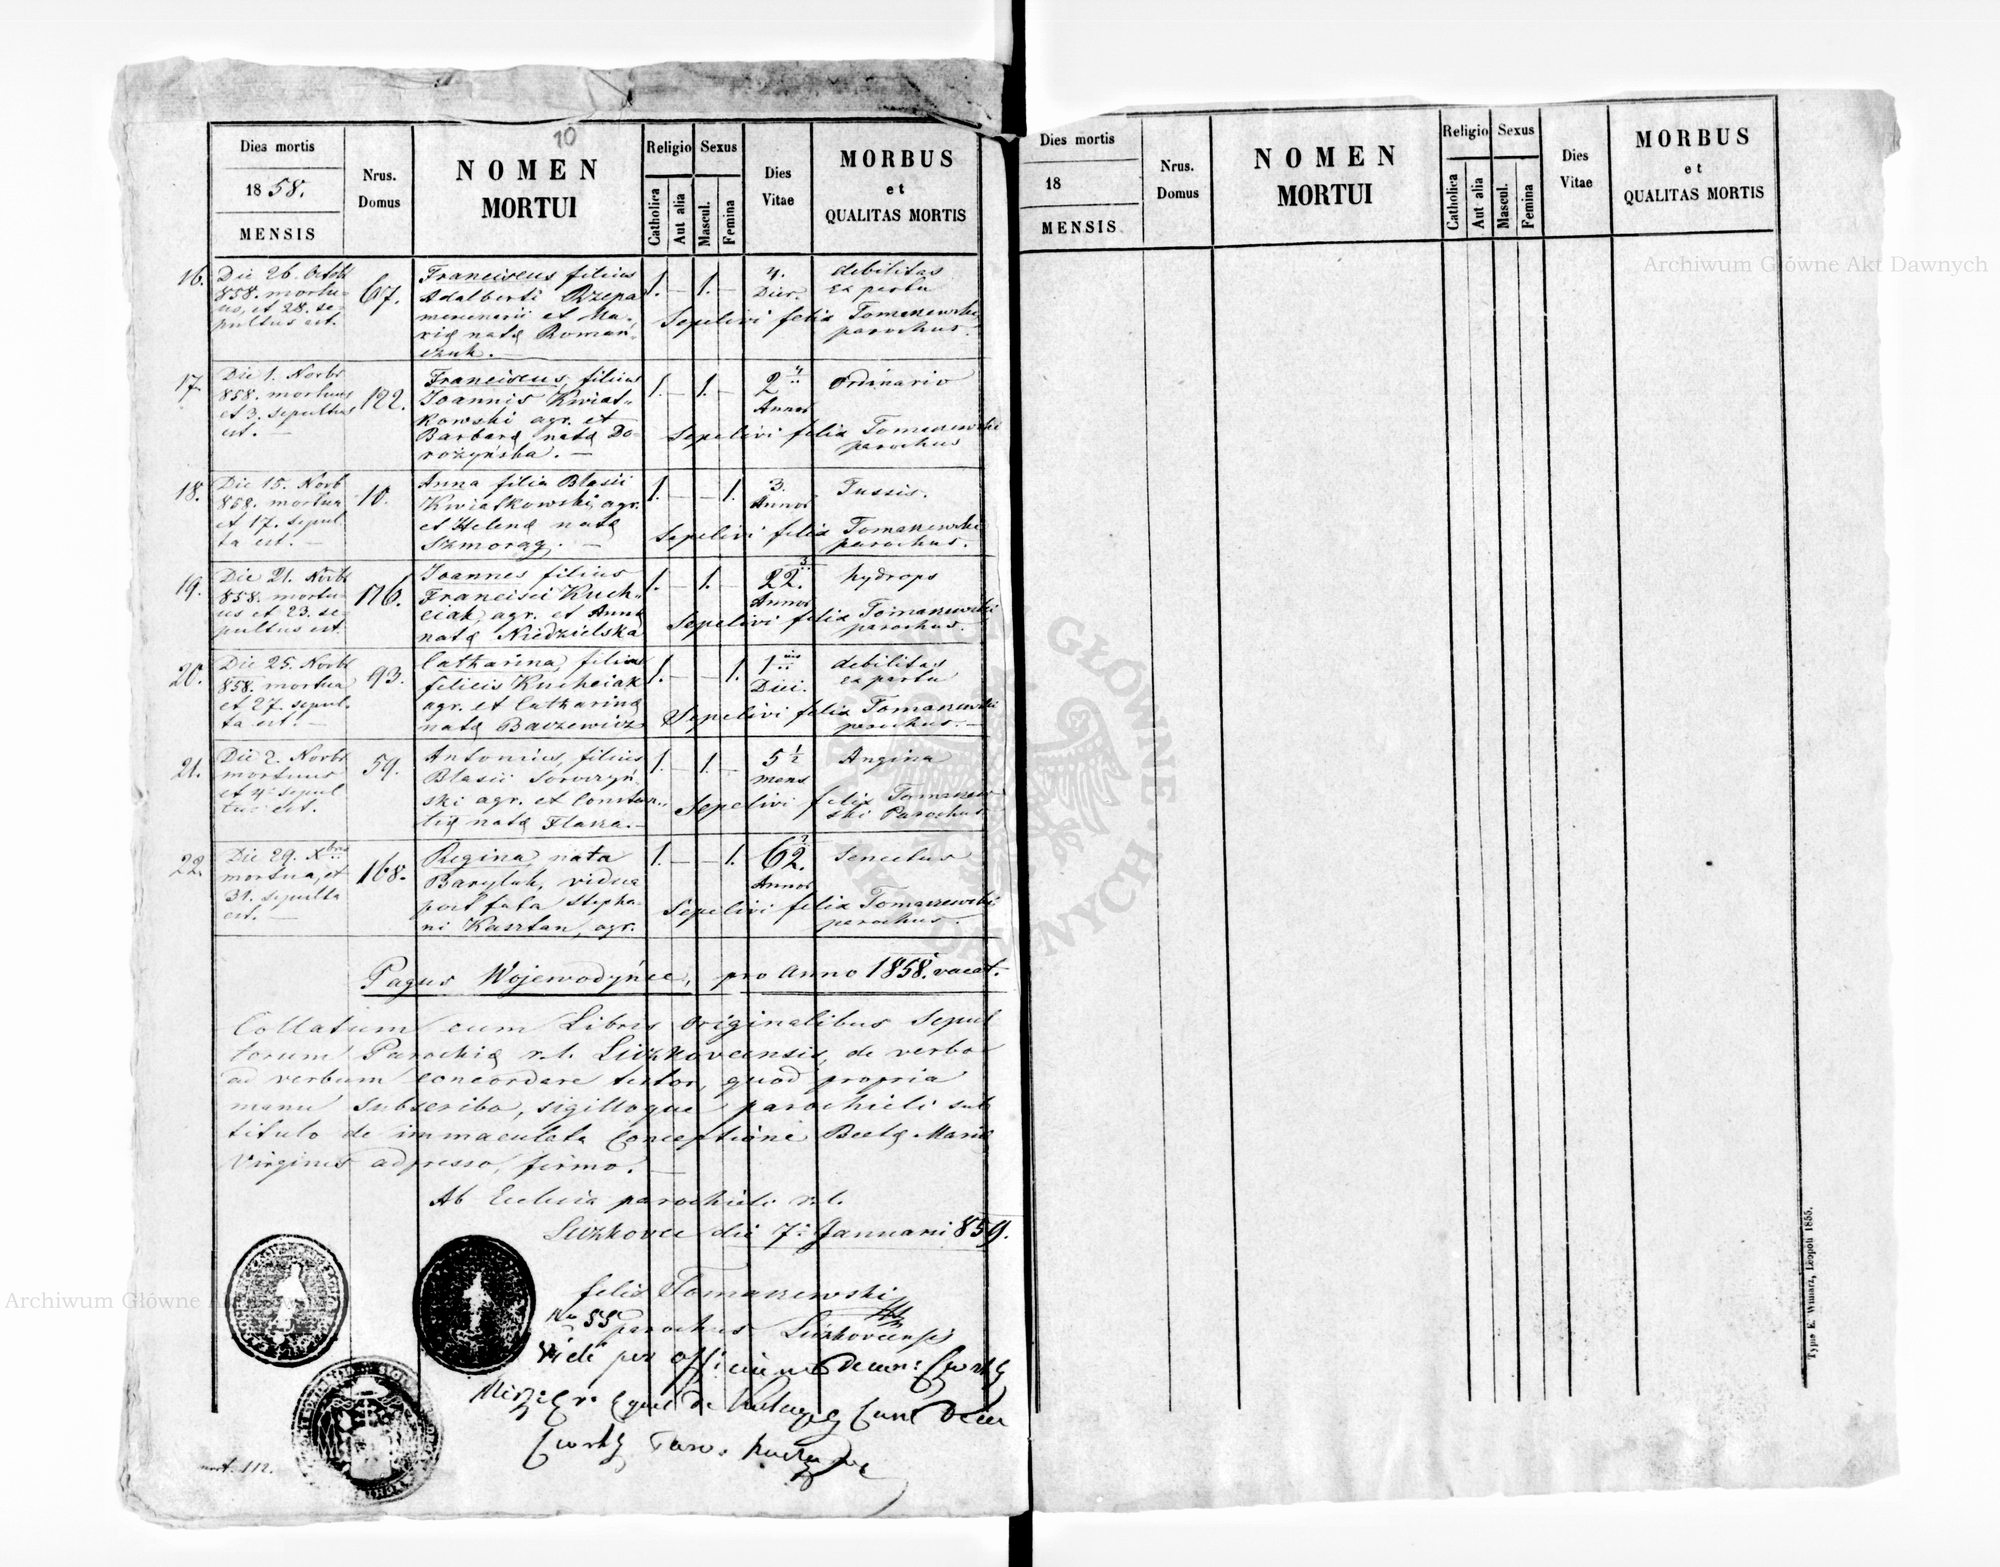 10
Dies mortis
1858.
MENSIS
Nrus.
Domus
NOMEN
MORTUI
Religio
Catholica
Aut alia
Sexus
Mascul.
Femina
Dies
Vitae
MORBUS
et
QUALITAS MORTIS
16.
Die 26. Octob
858. mortu-
us, et 28. se-
pultus est.
67.
Franciscus filius
Adalberti Rzepa
et Ma-
rię natę Roman-
czuk. —
1. — 1. —
4.
Dier.
debilitas
ex partu
Sepelivi felix Tomaszewski
parochus.
17.
Die 1. Novbr
858. mortuus
et 3. sepultus
est. —
122.
Franciscus, filius
Joannis Kwiat-
kowski agr. et
Barbarę natę Do-
rożyńska. —
1. — 1. —
2
Annor
Ordinario
Sepelivi felix Tomaszewski
parochus
18.
Die 15. Novb
858. mortua
et 17. sepul
ta est. —
10.
Anna filia Blasii
Kwiatkowski, agr.
et Helenę natę
Szmorąg. —
1. — — 1.
3.
Annor
Tussis.
Sepelivi felix Tomaszewski
parochus.
19.
Die 21. Novbr
858. mortu-
us et 23. se-
pultus est.
176.
Joannes filius
Francisci Kuch-
ciak, agr. et Annę
natę Niedzielska
1. — 1. —
22.
Annor
hydrops
Sepelivi felix Tomaszewski
parochus.
20.
Die 25. Novbr
858. mortua
et 27. sepul-
ta est. —
93.
Catharina, filia
felicis Kuchciak
agr. et Catharinę
natę Baczewicz
1. — — 1.
1
Diei.
debilitas
ex partu
Sepelivi felix Tomaszewski
parochus. —
21.
Die 2. Novbr
mortuus
et 4 sepul
tus est.
59.
Antonius, filius
Blasii
ski agr. et Constan-
tię natę Flasza. —
1. — 1. —
5½
mens
Angina
Sepelivi felix Tomaszew-
ski Parochus
22.
Die 29. Xbris
mortua, et
31. sepulta
est. —
168.
Regina nata
Baryluk, vidua
post fata Stepha-
ni Kasztan, agr.
1. — — 1.
62.
Annor
Senectus
Sepelivi felix Tomaszewski
parochus.
Pagus Wojewodyńce, pro Anno 1858. vacat.
Collatum cum Libris originalibus Sepul
torum Parochię r. l. , de verbo
ad verbum concordare testor, quod propria
manu subscribo, sigilloque parochiali sub
titulo de immaculata Conceptione Beatę Marię
Virginis adpresso, firmo. —
Ab Ecclesia parochiali r. l.
die 7. Januarii 859.
felix Tomaszewski
No 55 parochus
per
mort. 112.
Dies mortis
18
MENSIS
Nrus.
Domus
NOMEN
MORTUI
Religio
Catholica
Aut alia
Sexus
Mascul.
Femina
Dies
Vitae
MORBUS
et
QUALITAS MORTIS
Typis E. Winiarz, Leopoli 1855.
Archiwum Główne Akt Dawnych
Archiwum Główne Akt Dawnych